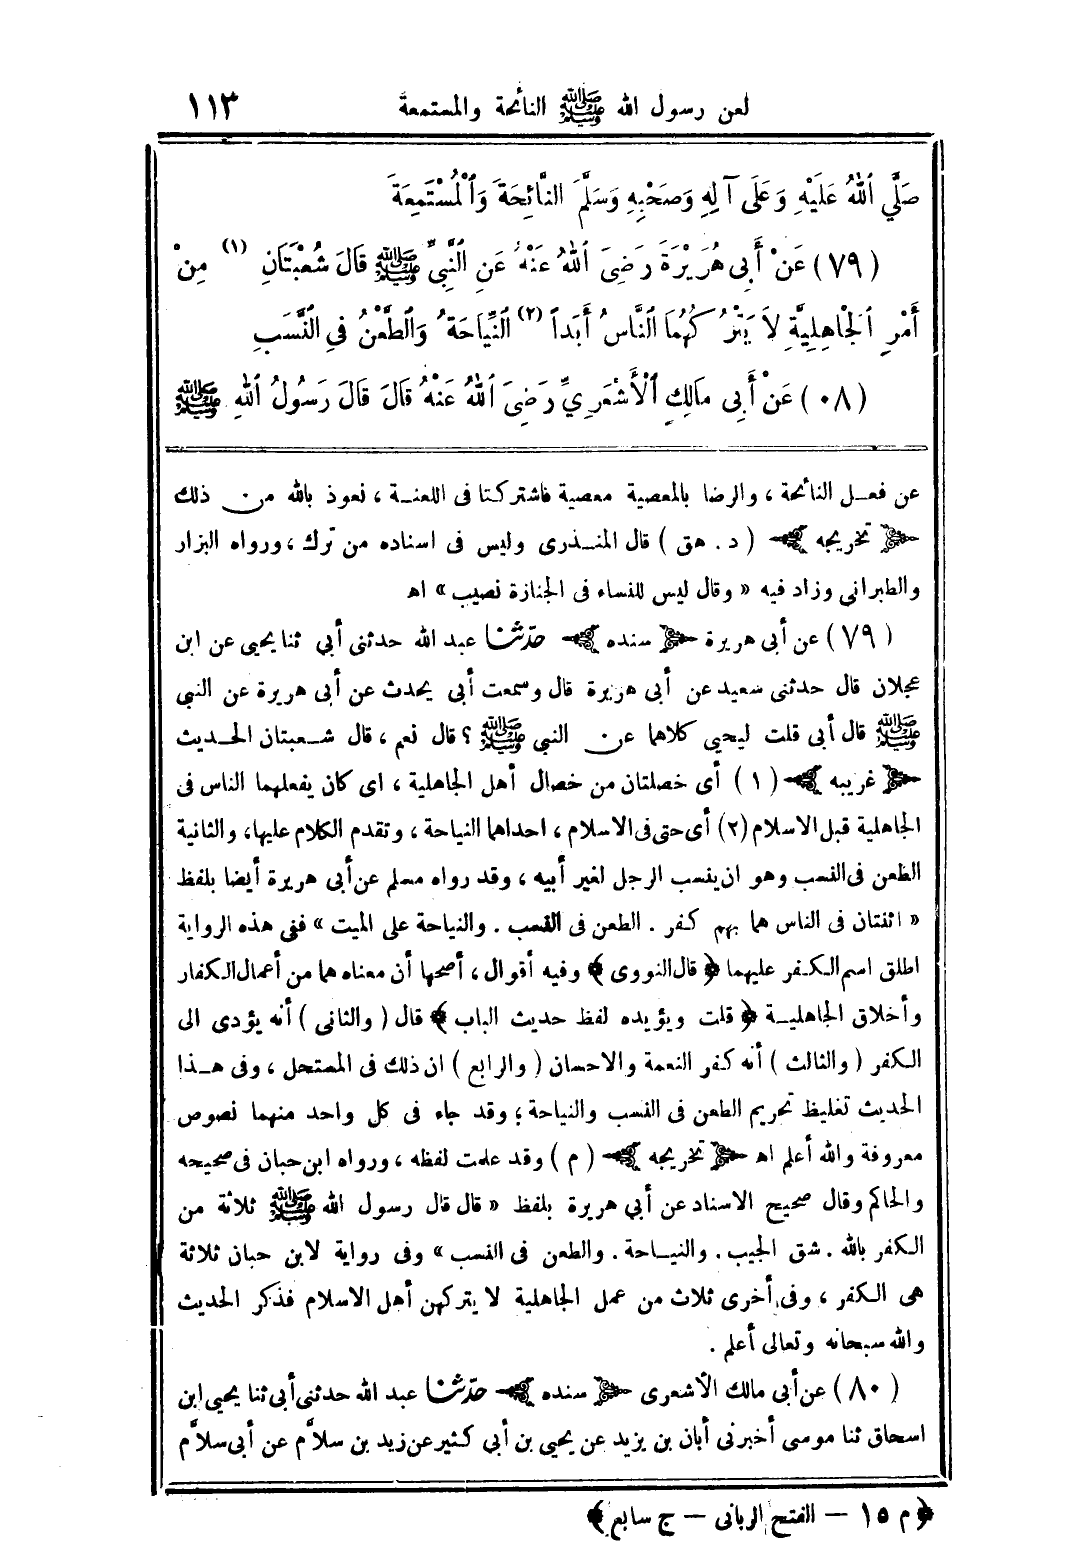 لعن رسول الله ﷺ النائحة والمستمعة ١١٣
صَلَّي اللهُ عَلَيْهِ وَعَلَى آلِهِ وَصَحْبِهِ وَسَلَّمَ النَّائِحَةَ وَالْمُسْتَمِعَةَ
(٧٩) عَنْ أَبِى هُرَيْرَةَ رَضِىَ اللهُ عَنْهُ عَنِ النَّبِيِّ ﷺ قَالَ شُعْبَتَانِ (١) مِنْ
أَمْرِ الْجَاهِلِيَّةِ لاَ يَتْرُكُهُمَا النَّاسُ أَبَداً (٢) النِّيَاحَةُ وَالطَّعْنُ فِى النَّسَبِ
(٠٨) عَنْ أَبِى مَالِكٍ الْأَشْعَرِيِّ رَضِىَ اللهُ عَنْهُ قَالَ قَالَ رَسُولُ اللهِ ﷺ
عن فعل النائحة ، والرضا بالمعصية معصية فاشتركتا فى اللعنة ، نعوذ بالله من ذلك
﴿ تخريجه ﴾ ( د . هق ) قال المنذرى وليس فى اسناده من ترك ، ورواه البزار
والطبرانى وزاد فيه « وقال ليس للنساء فى الجنازة نصيب » اه
(٧٩) عن أبى هريرة ﴿ سنده ﴾ حدّثنا عبد الله حدثنى أبي ثنا يحيى عن ابن
عجلان قال حدثنى سعيد عن أبى هريرة قال وسمعت أبى يحدث عن أبى هريرة عن النبي
ﷺ قال أبى قلت ليحيى كلاهما عن النبي ﷺ ؟ قال نعم ، قال شعبتان الحديث
﴿ غريبه ﴾ (١) أى خصلتان من خصال أهل الجاهلية ، اى كان يفعلهما الناس فى
الجاهلية قبل الاسلام (٢) أى حتى فى الاسلام ، احداهما النياحة ، وتقدم الكلام عليها، والثانية
الطعن فى النسب وهو ان ينسب الرجل لغير أبيه ، وقد رواه مسلم عن أبى هريرة أيضا بلفظ
« اثنتان فى الناس هما بهم كفر . الطعن فى النسب . والنياحة على الميت » ففى هذه الرواية
اطلق اسم الكفر عليهما ﴿ قال النووى ﴾ وفيه أقوال ، أصحها أن معناه هما من أعمال الكفار
وأخلاق الجاهلية ﴿ قلت ويؤيده لفظ حديث الباب ﴾ قال ( والثانى ) أنه يؤدى الى
الكفر ( والثالث ) أنه كفر النعمة والاحسان ( والرابع ) ان ذلك فى المستحل ، وفى هذا
الحديث تغليظ تحريم الطعن فى النسب والنياحة ؛ وقد جاء فى كل واحد منهما نصوص
معروفة والله أعلم اه ﴿ تخريجه ﴾ ( م ) وقد علمت لفظه ، ورواه ابن حبان فى صحيحه
والحاكم وقال صحيح الاسناد عن أبي هريرة بلفظ « قال قال رسول الله ﷺ ثلاثة من
الكفر بالله . شق الجيب . والنياحة . والطعن فى النسب » وفى رواية لابن حبان ثلاثة
هى الكفر ، وفى أخرى ثلاث من عمل الجاهلية لا يتركهن أهل الاسلام فذكر الحديث
والله سبحانه وتعالى أعلم .
(٨٠) عن أبى مالك الأشعرى ﴿ سنده ﴾ حدّثنا عبد الله حدثنى أبى ثنا يحيى ابن
اسحاق ثنا موسى أخبرنى أبان بن يزيد عن يحيى بن أبي كثير عن زيد بن سلاّم عن أبى سلاّم
﴿ م ١٥ — الفتح الربانى — ج سابع ﴾